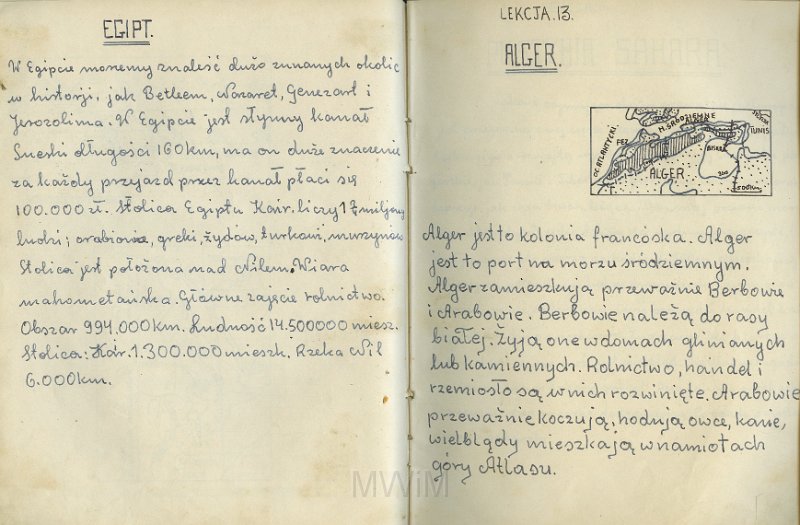 EGIPT.
W Egipcie możemy znaleść dużo znanych okolic
w historji, jak Betleem, Nazaret, Genezart i
Jerozolima. W Egipcie jest słynny kanał
Sueski długości 160km, ma on duże znaczenie
za każdy przejazd przez kanał płaci się
100.000 zł. Stolica Egiptu Kair. liczy
ludzi; arabiania, greki, żydow, turkowi,
Stolica jest położona nad Nilem. Wiara
mahometańska. Główne zajęcie rolnictwo.
Obszar 994.000km. Ludność 14.500000 miesz.
Stolica: Kair. 1.300.000 mieszk. Rzeka Nil
6.000km.
LEKCJA.13.
ALGER.
OC. ATLANTYCKI
FEZ
M. ŚRÓDZIEMNE
ALGER
TUNIS
BISKRA
ALGER
500km
Alger jest to kolonia francóska. Alger
jest to port na morzu śródziemnym.
Alger zamieszkują przeważnie Berbowie
i Arabowie. Berbowie należą do rasy
białej. Żyją one w domach glinianych
lub kamiennych. Rolnictwo, handel i
rzemiosło są w nich rozwinięte. Arabowie
przeważnie koczują, hodują owce, konie,
wielblądy mieszkają w namiotach
góry Atlasu.
MWiM